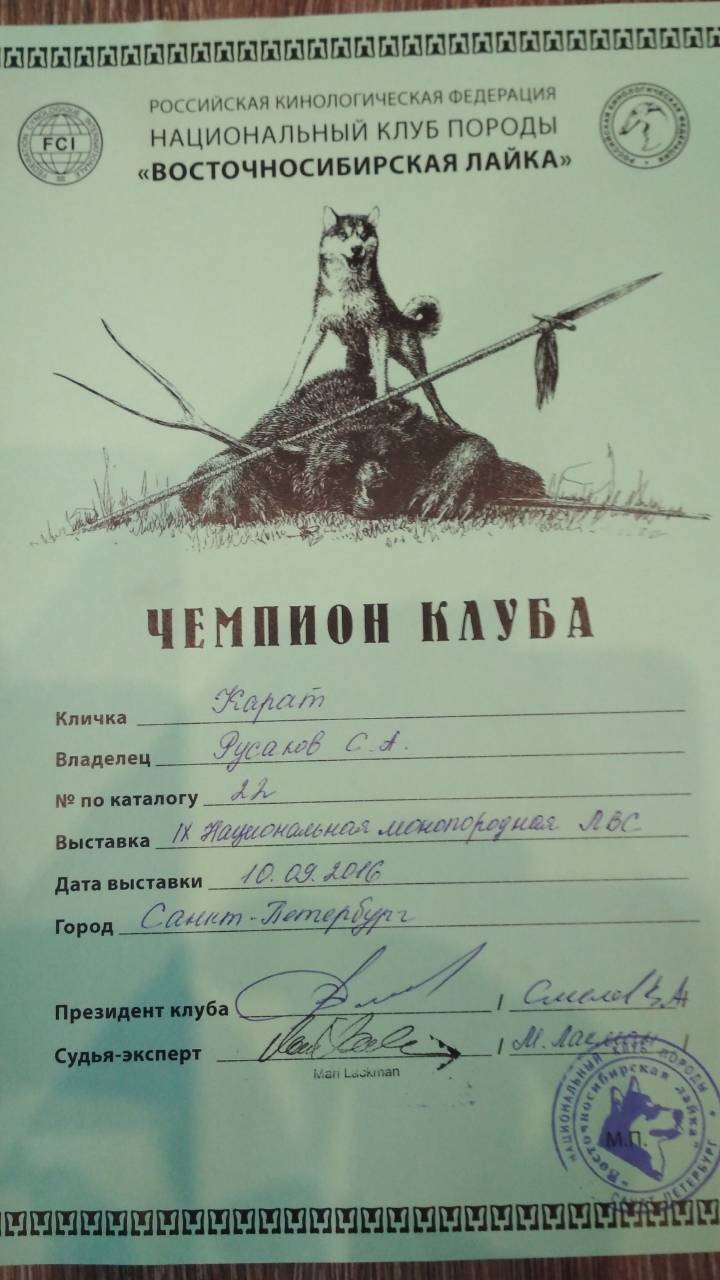 РОССИЙСКАЯ КИНОЛОГИЧЕСКАЯ ФЕДЕРАЦИЯ
НАЦИОНАЛЬНЫЙ КЛУБ ПОРОДЫ
«ВОСТОЧНОСИБИРСКАЯ ЛАЙКА»
FCI
ЧЕМПИОН КЛУБА
Кличка Карат
Владелец Русаков С.А.
№ по каталогу 22
Выставка IX Национальная монопородная ЛВС
Дата выставки 10.09.2016
Город Санкт-Петербург
Президент клуба / /
Судья-эксперт / М. Лакман /
Mari Lackman
М.П.
НАЦИОНАЛЬНЫЙ КЛУБ ПОРОДЫ
"Восточносибирская лайка"
САНКТ-ПЕТЕРБУРГ